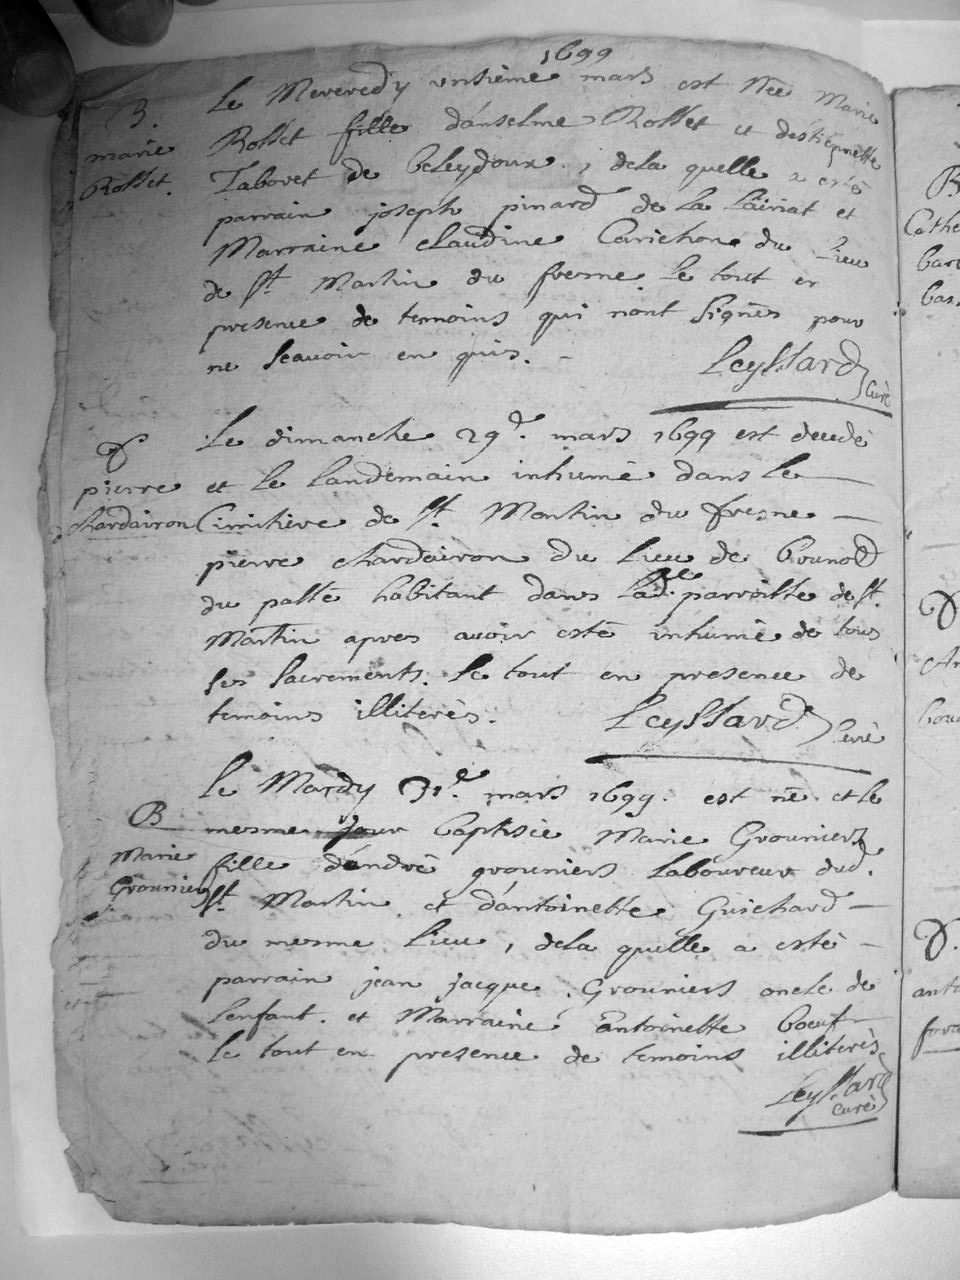 1699
B.
marie
Rosset.
Le Mercredy unsième mars est Née Marie
Rosset fille d'anselme Rosset et d'estiennette
Tabouet de beleydoux, de la quelle a esté
parrain joseph pinard de La Lairiat et
Marraine claudine Carichon du Lieu
de St. Martin du fresne. Le tout en
presence de temoins qui nont Signés pour
ne Scavoir en quis. -
Leyssard Curé
D
pierre
chardairon
Le dimanche 29e. mars 1699 est decedé
et Le Landemain inhumé dans Le
Cimitière de St. Martin du fresne
pierre chardairon du Lieu de
du passé habitant dans Lade. parroisse de St.
Martin apres avoir esté inhumé de tous
ses Sacrements. Le tout en presence de
temoins illiterés.
Leyssard Curé
B
Marie
Grouniers
Le Mardy 31e. mars 1699. est né et le
mesme jour baptisée Marie Grouniers
fille d'andré grouniers Laboureur dud.
St. Martin et d'antoinette Guichard
du mesme Lieu, de la quelle a esté
parrain jean jacque Grouniers oncle de
Lenfant. et Marraine antoinette boeuf
Le tout en presence de temoins illiterés
Leyssard
curé
B
Cathe
bar
bas
D
bou
D.
anto
fora